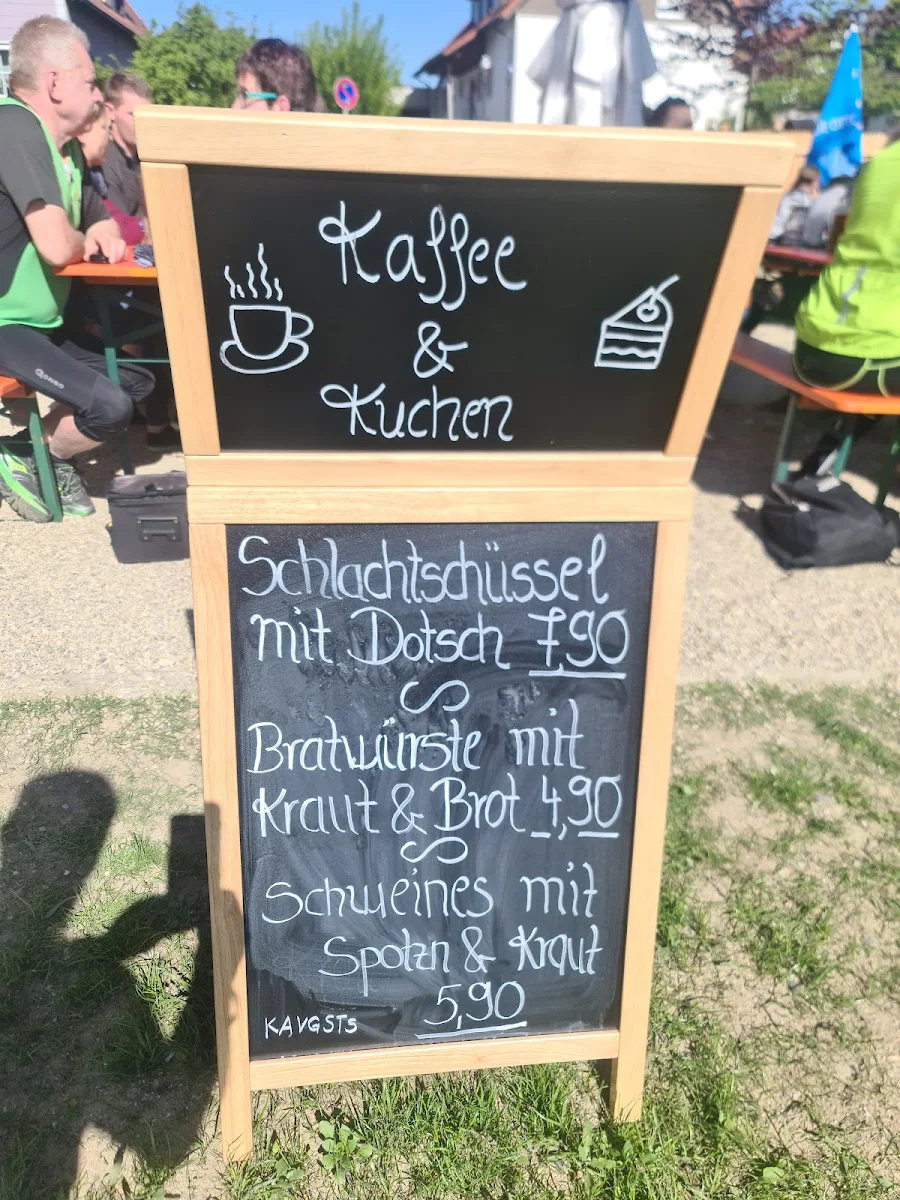 Kaffee
&
Kuchen
Schlachtschüssel
mit Dotsch 7,90
Bratwürste mit
Kraut & Brot 4,90
Schweines mit
Spotzn & Kraut
5,90
KAVGSTs
GONSO